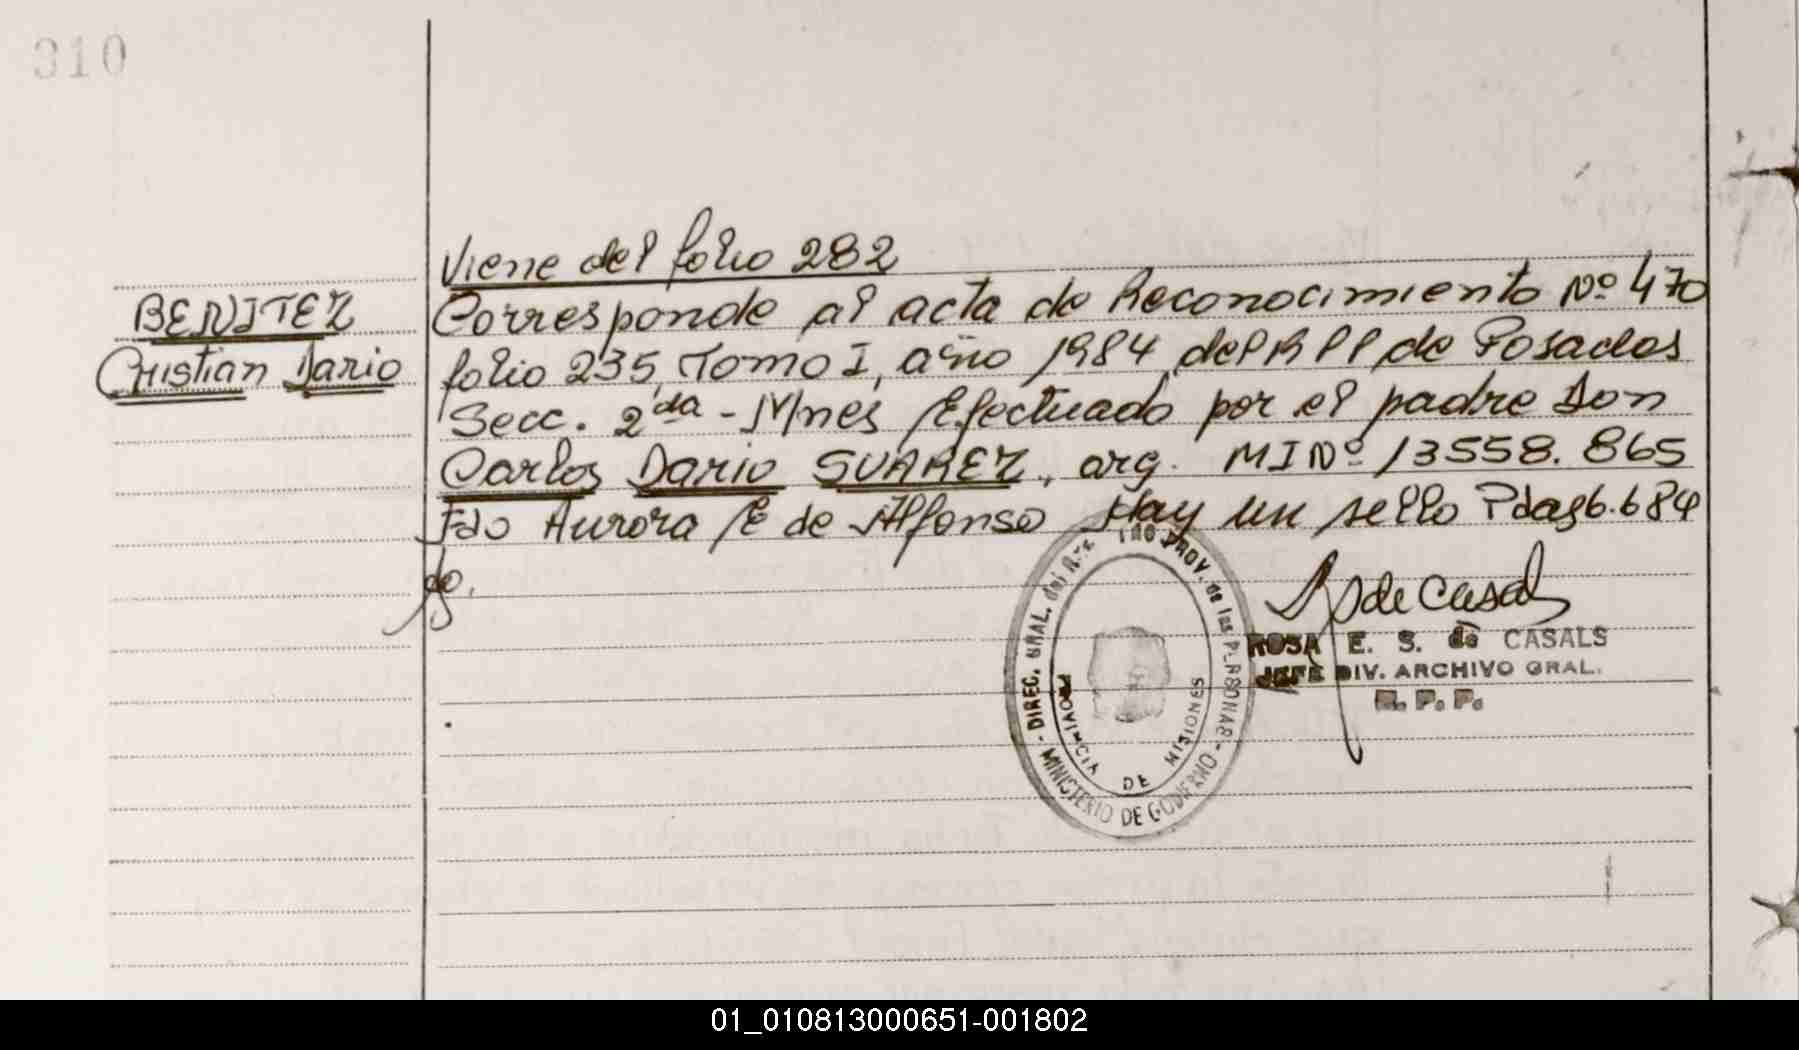 310
Viene del folio 282
BENITEZ
Cristian Dario
Corresponde al acta de Reconocimiento Nº 470
folio 235, Tomo I, año 1984, del R P P de Posadas
Secc. 2da - Mnes Efectuado por el padre Don
Carlos Dario SUAREZ, arg. MI Nº 13558.865
Fdo Aurora E de Alfonso Hay un sello Pdas 6.6.84
DIREC. GRAL. del PROV. de las PERSONAS
MINISTERIO DE GOBIERNO
PROVINCIA DE MISIONES
de Casals
ROSA E. S. de CASALS
JEFE DIV. ARCHIVO GRAL.
R. P. P.
01_010813000651-001802